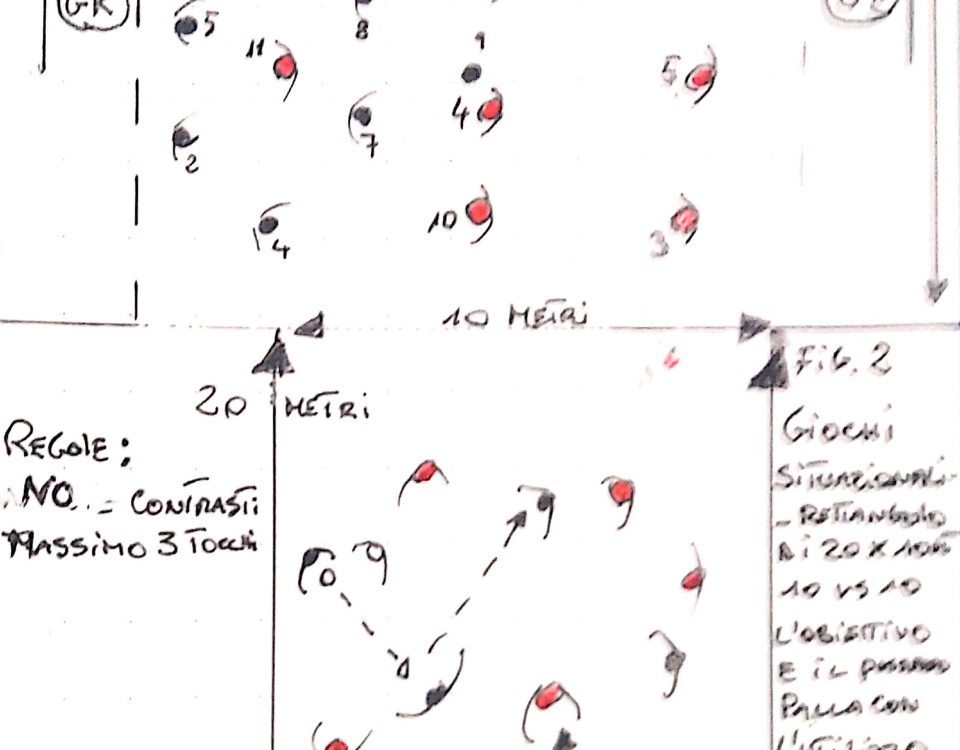 GK
5
8
11
9
5
4
7
2
10
4
3
10 METRI
FIG. 2
20 METRI
REGOLE:
NO - CONTRASTI
MASSIMO 3 TOCCHI
GIOCHI
SITUAZIONALI-
- RETTANGOLO
DI 20 X 10M
10 VS 10
L'OBIETTIVO
E IL
PALLA CON
L'UTILIZZO